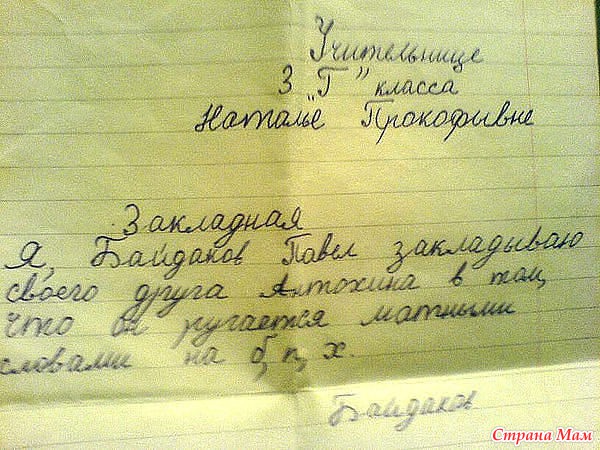 Учительнице
3 „Г” класса
Наталье Прокофывне
Закладная
Я, Байдаков Павел закладываю
своего друга Антохина в том,
что он ругается матными
словами на б, п, х.
Байдаков
Страна Мам